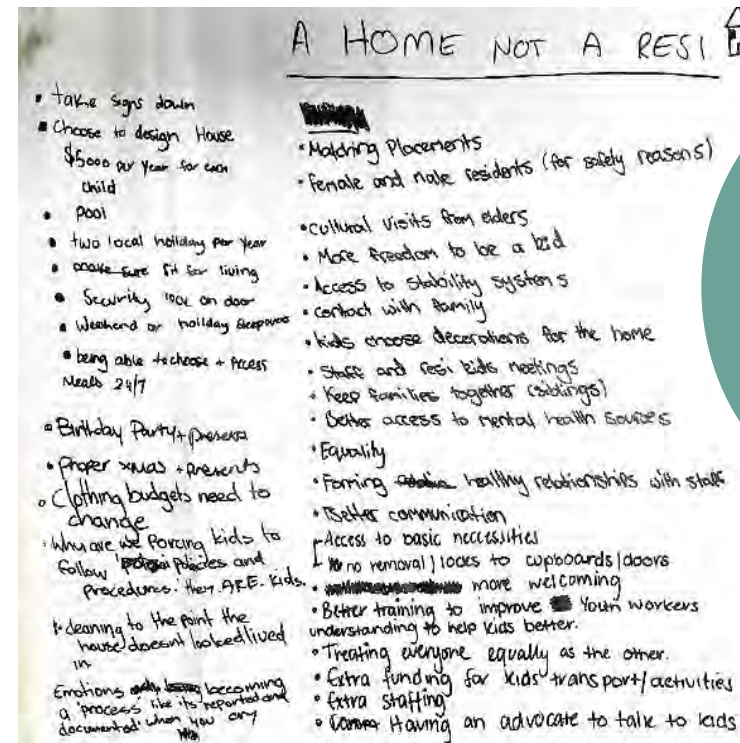 A HOME NOT A RESI.
• take signs down
• Choose to design House
$5000 per year for each
child
• Pool
• two local holiday per year
• make sure fit for living
• Security lock on door
• Weekend or holiday sleepovers
• being able to choose + Access
Meals 24/7
• Birthday Party + presents
• Proper xmas + presents
• Clothing budgets need to
change
• Why are we forcing kids to
follow policies and
procedures. they ARE kids.
• cleaning to the point the
house doesnt looked lived
in
Emotions becoming
a 'process' like its reported and
documented when you cry
• Matching Placements
• Female and male residents (for safety reasons)
• cultural visits from elders
• More freedom to be a kid
• Access to stability systems
• contact with family
• kids choose decorations for the home
• Staff and resi kids meetings
• Keep families together (siblings)
• Better access to mental health
• Equality
• Forming healthy relationships with staff
• Better communication
- Access to basic neccessities
- no removal / locks to cupboards / doors
• more welcoming
• Better training to improve Youth workers
understanding to help kids better.
• Treating everyone equally as the other.
• Extra funding for kids transport/activities
• Extra staffing
• Having an advocate to talk to kids